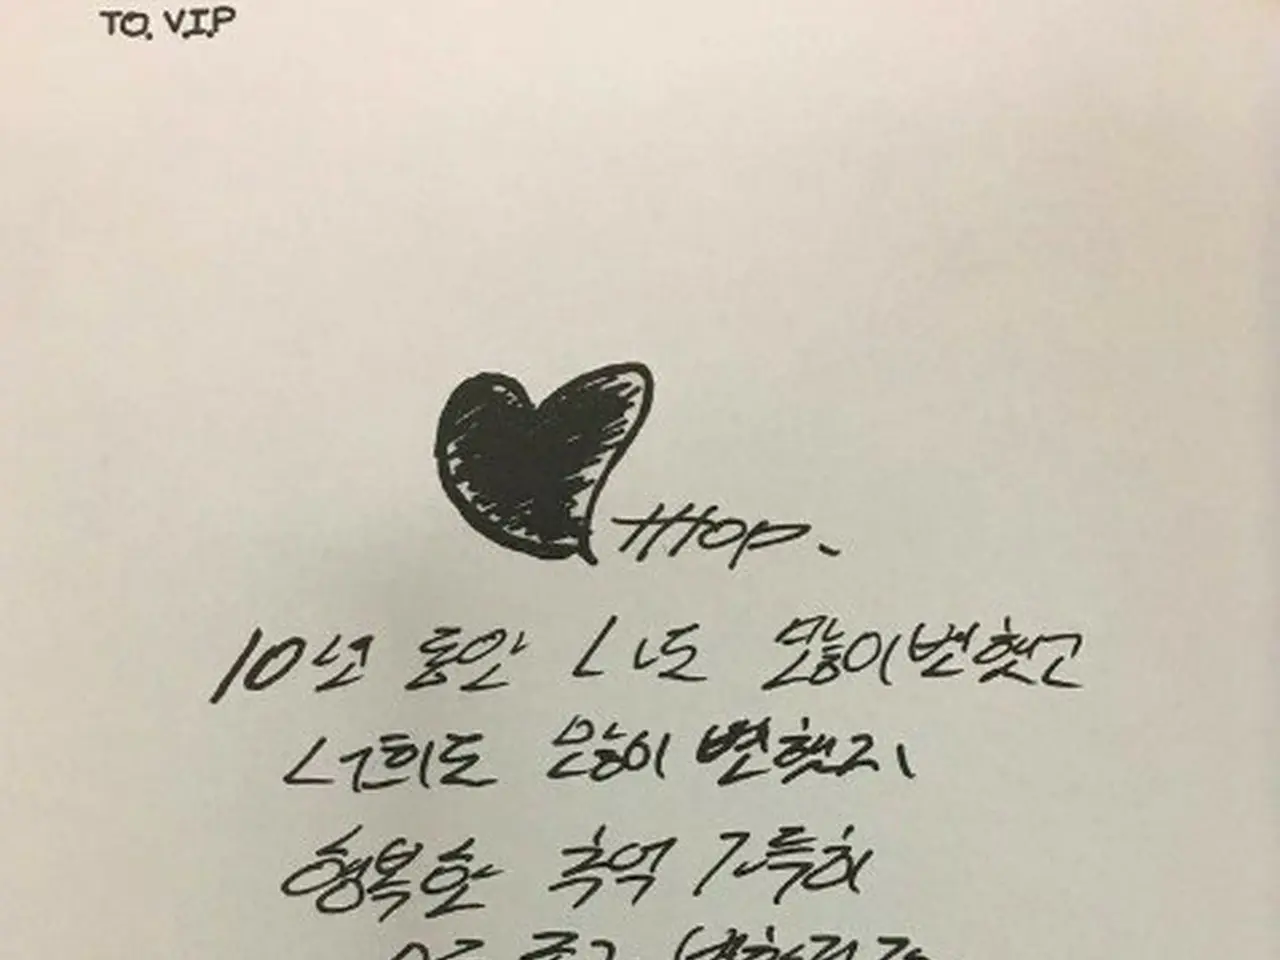 TO. V.I.P
TTTOP.
10년 동안 나도 많이 변했고
너희도 많이 변했고,
행복한 추억 가득히